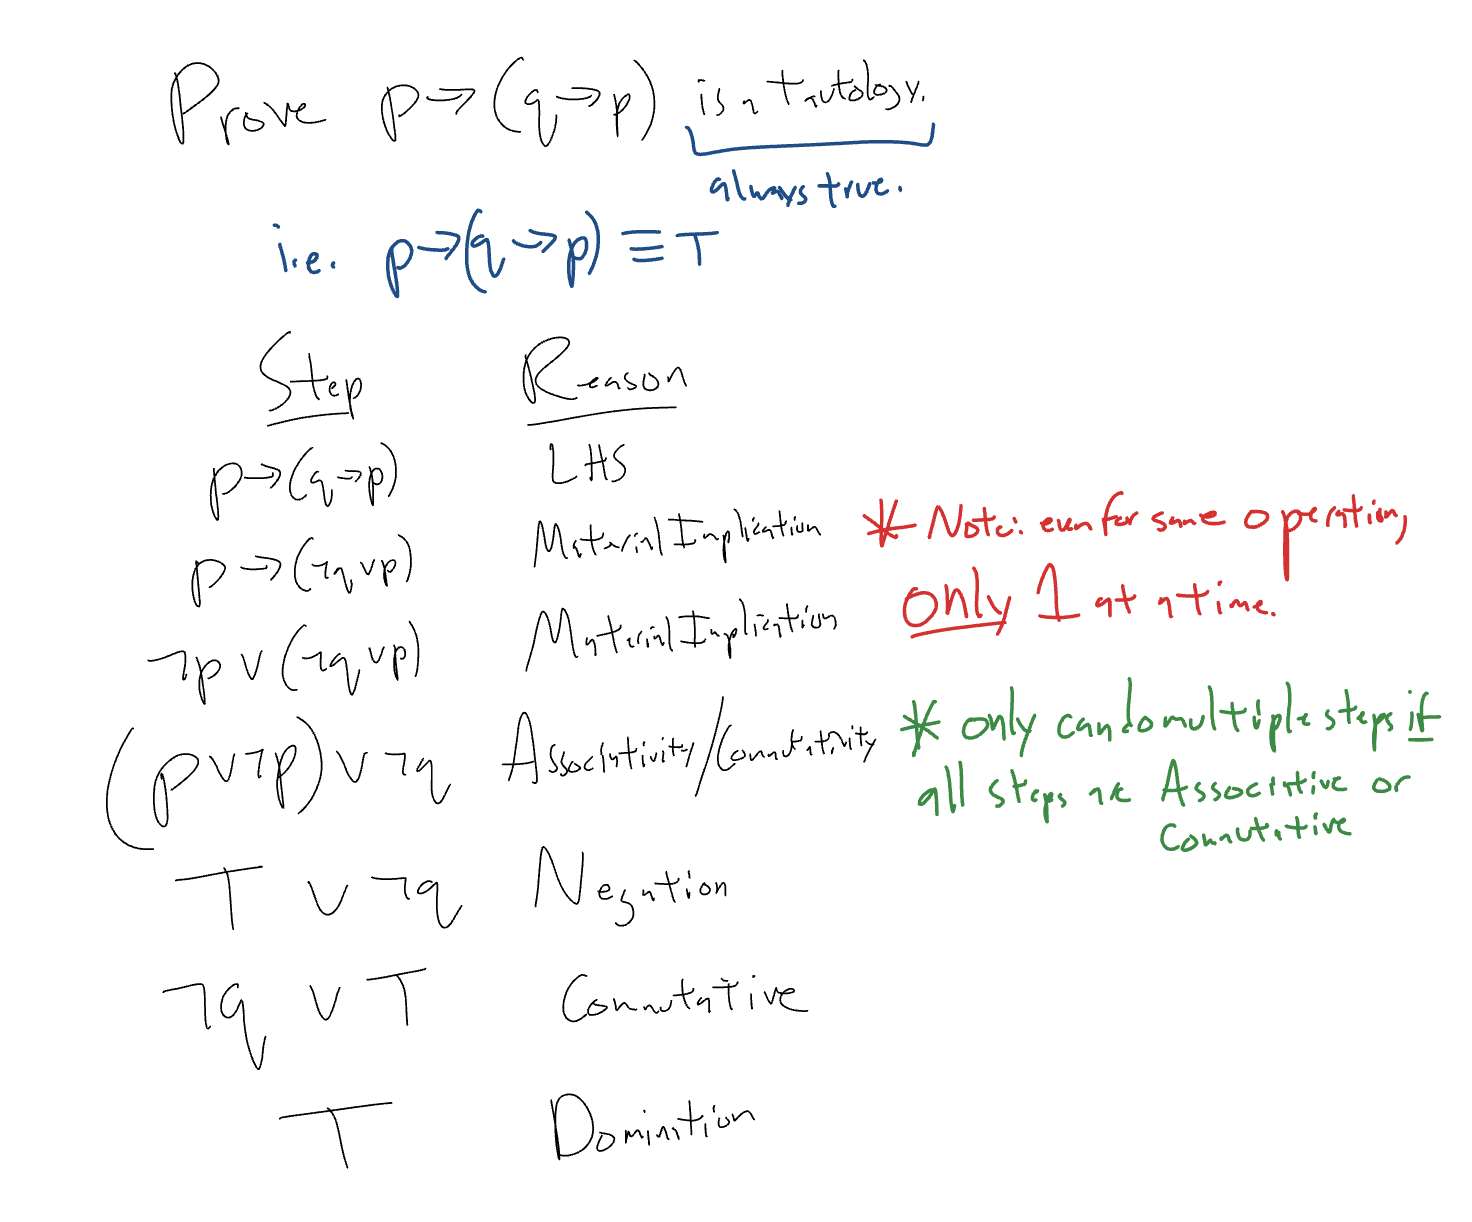 Prove p→(q→p) is a tautology.
always true.
i.e. p→(q→p) ≡ T
Step Reason
p→(q→p) LHS
p→(¬q∨p) Material Implication
¬p∨(¬q∨p) Material Implication
(p∨¬p)∨¬q Associativity/Commutativity
T ∨ ¬q Negation
¬q ∨ T Commutative
T Domination
* Note: even for same operation,
only 1 at a time.
* only can do multiple steps if
all steps are Associative or
Commutative